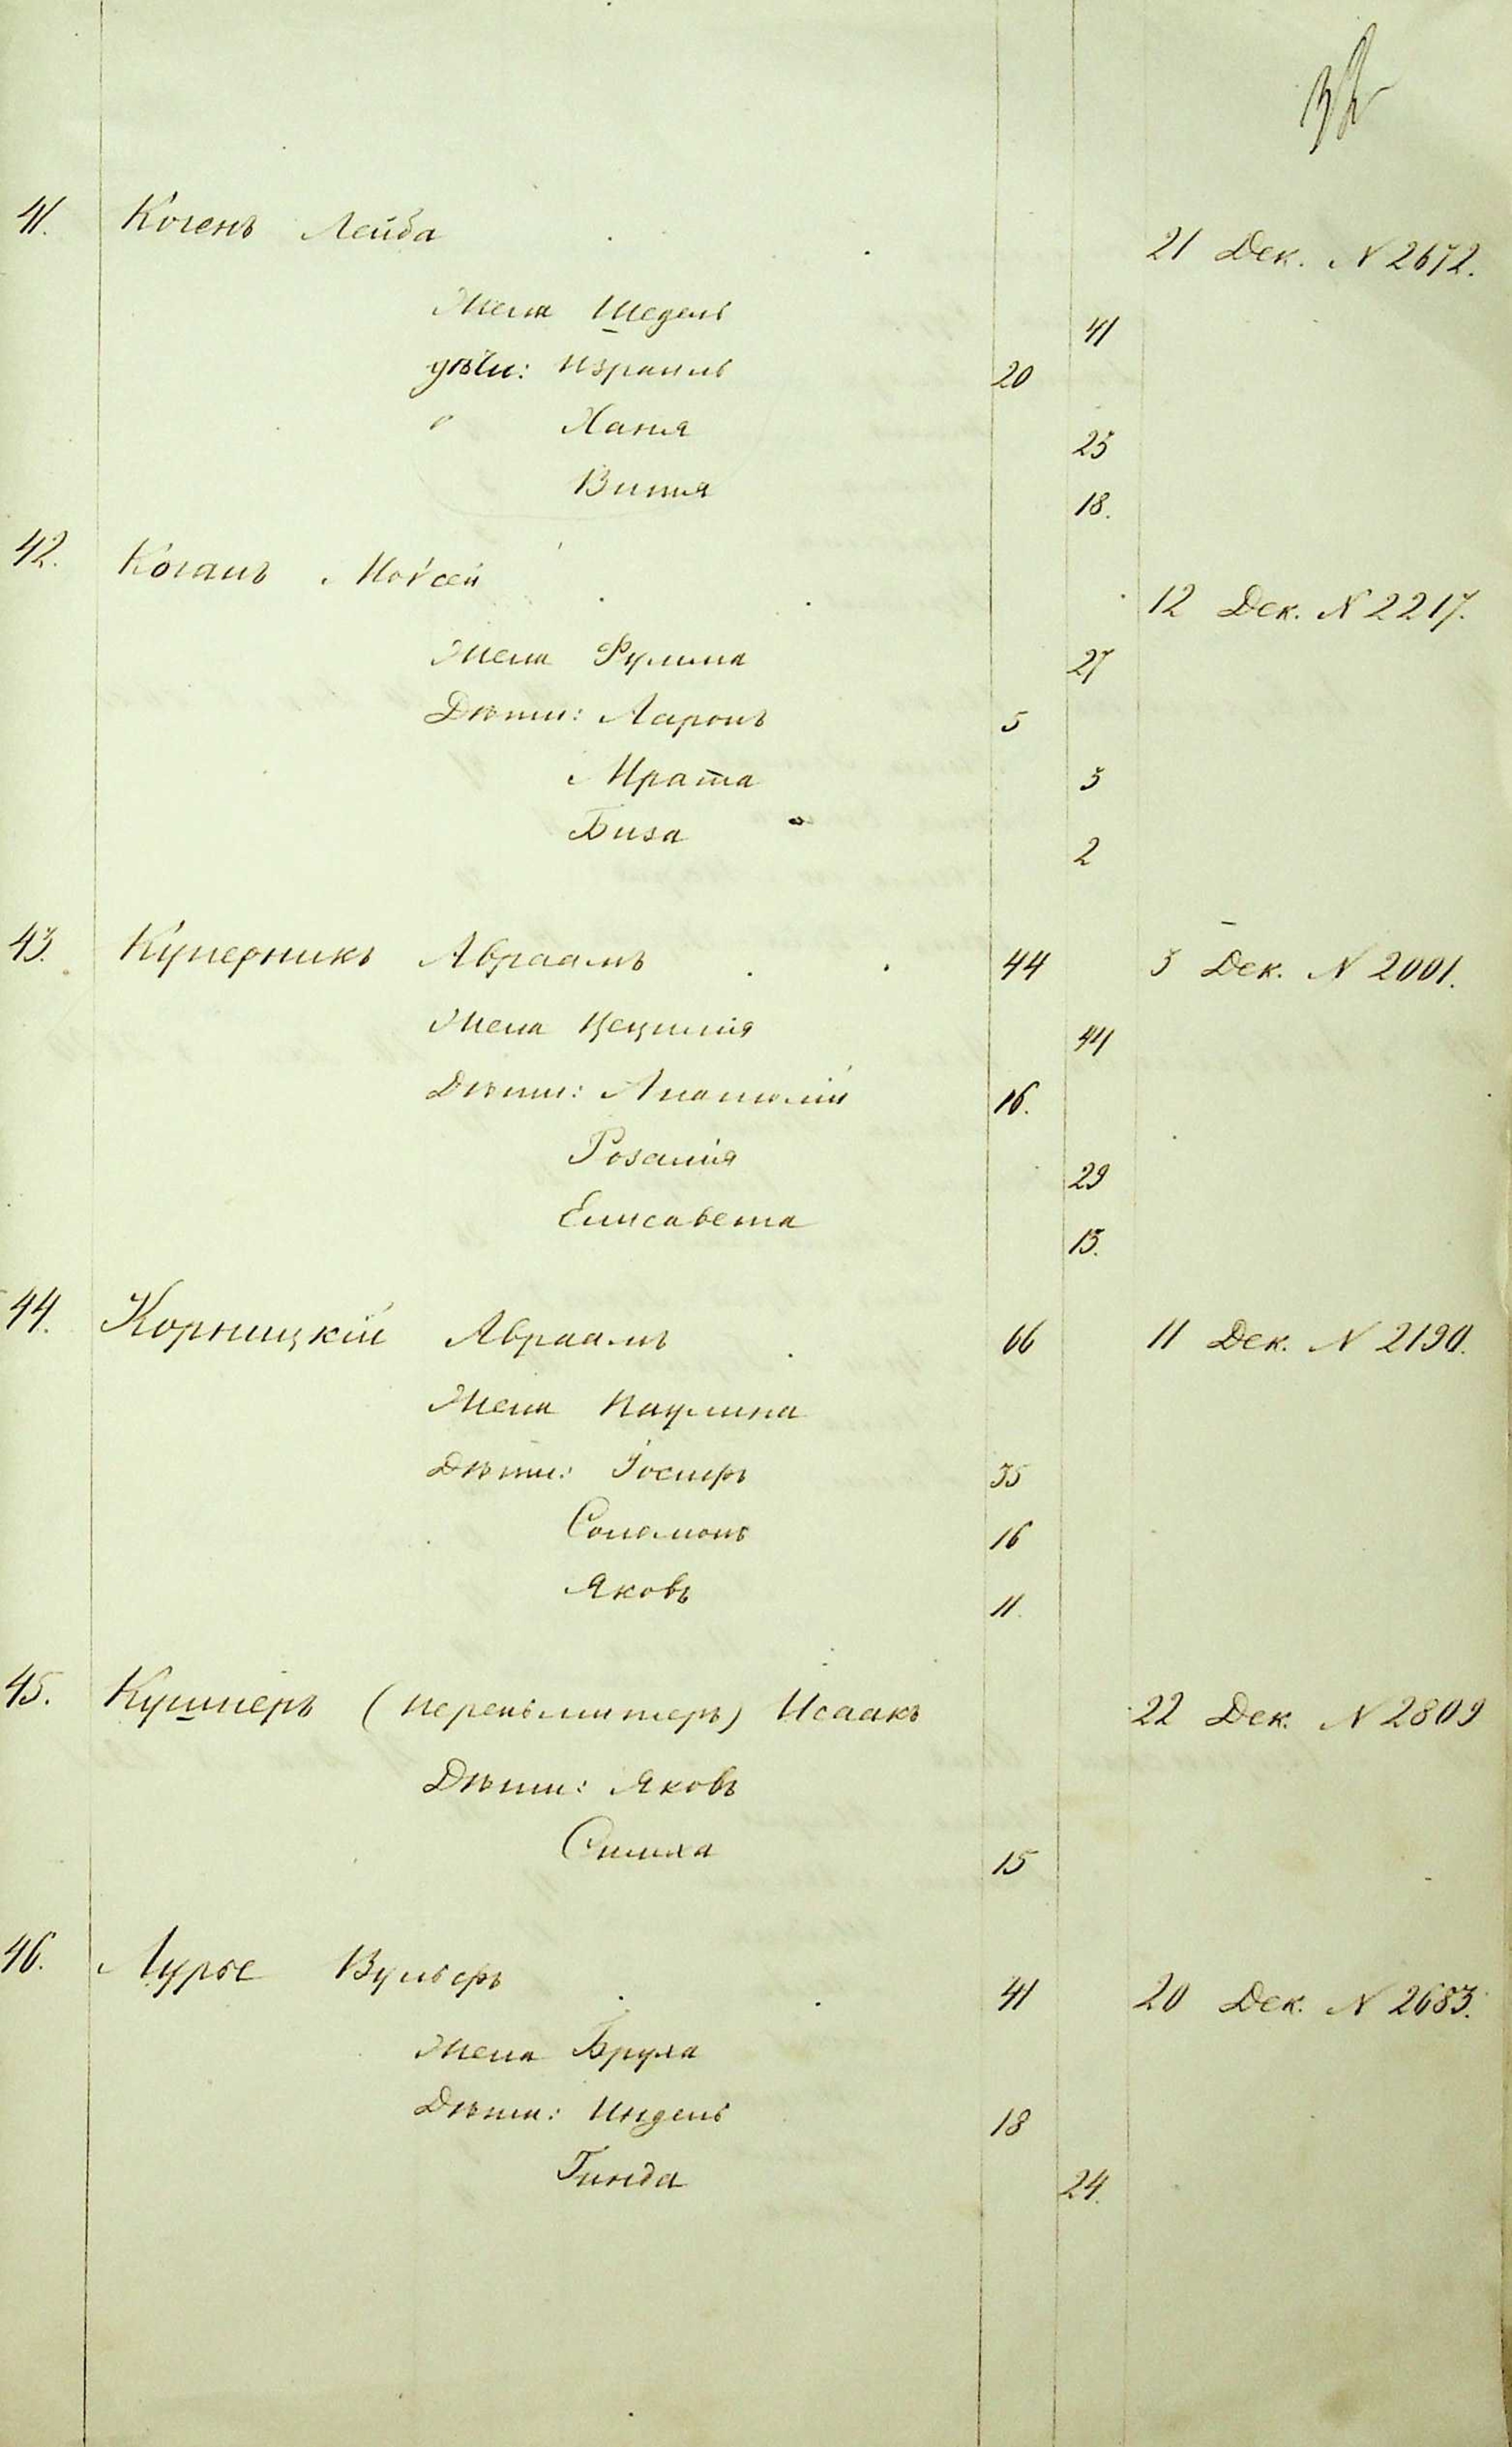 32
41. Когенъ Лейба 21 Дек. N 2672.
Жена Шедель 41
дѣти: Израиль 20
Ханя 23
Витя 18.
42. Коганъ Мовсей 12 Дек. N 2217.
Жена Фрума 27
Дѣти: Ааронъ 5
Мрата 3
Биза 2
43. Куперникъ Авраамъ 44 3 Дек. N 2001.
Жена Цецилія 44
Дѣти: Анатолій 16.
Розалія 29
Елисавета 13.
44. Корницкій Авраамъ 66 11 Дек. N 2190.
Жена Паулина
Дѣти: Іосифъ 35
Соломонъ 16
Яковъ 11.
45. Кушнеръ (перепьлитеръ) Исаакъ 22 Дек. N 2809
Дѣти: Яковъ
Симха 15
46. Лурье Вульфъ 41 20 Дек. N 2683.
Жена Бруха
Дѣти: Индель 18
Гинда 24.